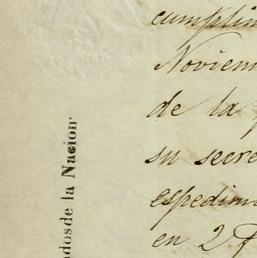 cumplim
Noviem
de la
su secre
espedien
en 2
dos de la Nacion